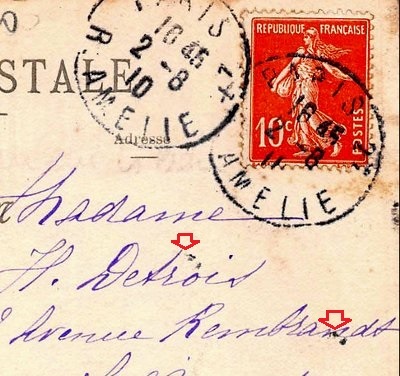 PARIS
16 45
2 -8
10
R. AMELIE 47
STALE
Adresse
REPUBLIQUE FRANÇAISE
10c
POSTES
PARIS
16 45
2 -8
AMELIE
Madame
H. Detrois
Avenue Rembrandt